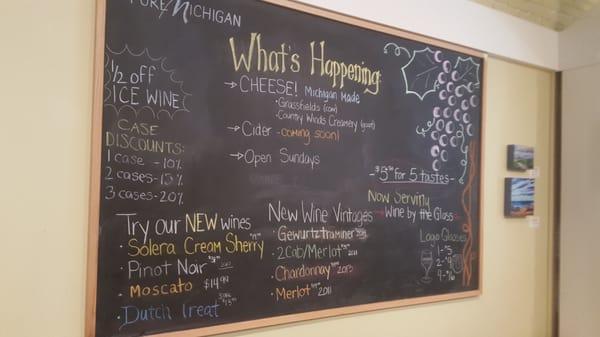 PURE MICHIGAN
1/2 off
ICE WINE
CASE
DISCOUNTS:
1 case - 10%
2 cases - 15%
3 cases - 20%
What's Happening:
→ CHEESE! Michigan Made
· Grassfields (cow)
· Country Winds Creamery (goat)
→ Cider - coming soon!
→ Open Sundays
- $5.00 for 5 tastes -
Now Serving
Wine by the Glass
Logo Glasses
1 - $5
2 - $9
4 - $16
Try our NEW wines
· Solera Cream Sherry
· Pinot Noir
· Moscato $14.99
· Dutch Treat
New Wine Vintages
· Gewurtztraminer
· 2 Cab/Merlot 2011
· Chardonnay 2013
· Merlot 2011